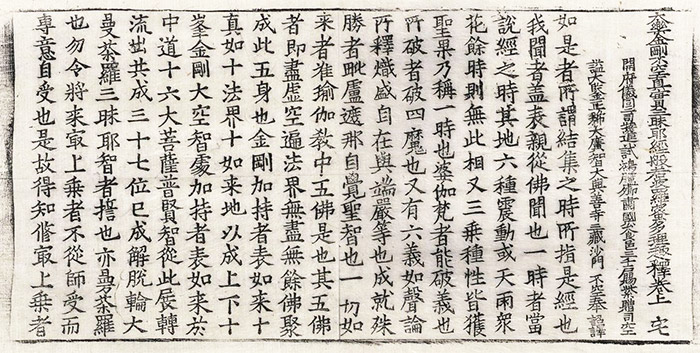 大樂金剛不空真實三昧耶經般若波羅蜜多理趣釋卷上 宅
開府儀同三司特進試鴻臚卿肅國公食邑三千戶賜紫贈司空
謚大鑒正號大廣智大興善寺三藏沙門 不空奉 詔譯
如是者所謂結集之時所指是經也
我聞者蓋表親從佛聞也一時者當
說經之時其地六種震動或天雨衆
花餘時則無此相又三乘種性皆獲
聖果乃稱一時也婆伽梵者能破義也
所破者破四魔也又有六義如聲論
所釋熾盛自在與端嚴等也成就殊
勝者毗盧遮那自覺聖智也一切如
來者准瑜伽教中五佛是也其五佛
者即盡虛空遍法界無盡無餘佛聚
成此五身也金剛加持者表如來十
真如十法界十如來地以成上下十
峯金剛大空智處加持者表如來於
中道十六大菩薩普賢智從此展轉
流出共成三十七位已成解脫輪大
曼荼羅三昧耶智者誓也亦曼荼羅
也勿令將來㝡上乘者不從師受而
專意自受也是故得知修㝡上乘者